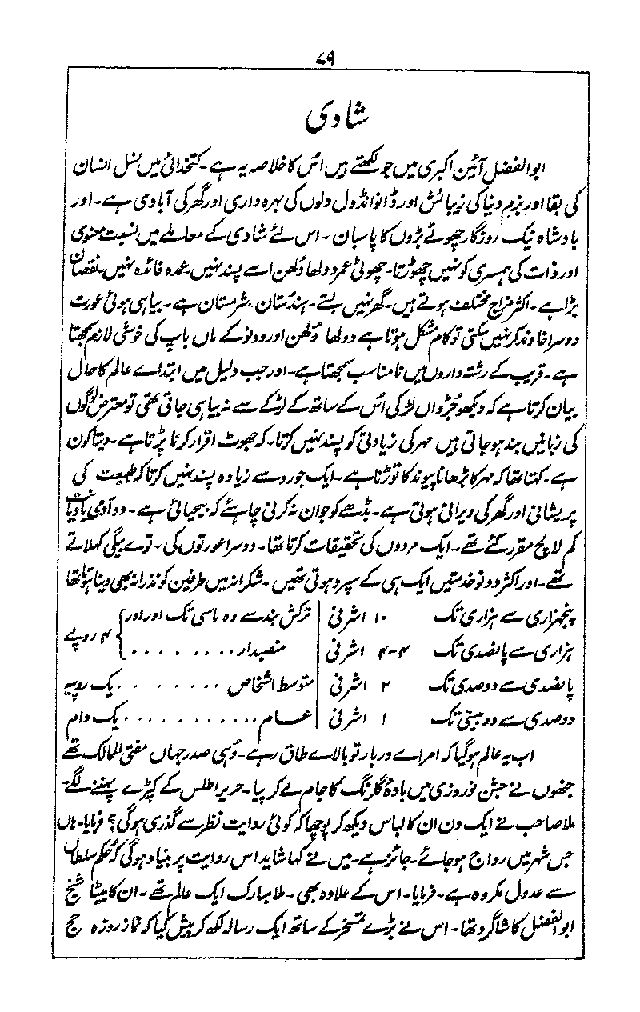 ۷۹
شادی
ابوالفضل آئین اکبری میں جو لکھتے ہیں اُس کا خلاصہ یہ ہے۔ کتخدائی میں نسل انسان
کی بقا اور بزم دنیا کی زیبائش اور ڈانواںڈول دلوں کی پہرہ داری اور گھر کی آبادی ہے۔ اور
بادشاہ نیک روزگار چھوٹے بڑوں کا پاسبان۔ اس لئے شادی کے معاملے میں نسبت معنوی
اور ذات کی ہمسری کو نہیں چھوڑتا۔ چھوٹی عمر دولھا دُلھن اسے پسند نہیں عمدہ فائدہ نہیں نقصان
بڑا ہے۔ اکثر مزاج مختلف ہوتے ہیں۔ گھر نہیں بستے۔ ہندستان شرمستان ہے۔ بیاہی ہوئی عورت
دوسرا خاوند کر نہیں سکتی تو کام مشکل ہوتا ہے دولھا دُلھن اور دونو کے ماں باپ کی خوشی لازم سمجھتا
ہے۔ قریب کے رشتہ داروں میں نامناسب سمجھتا ہے۔ اور جب دلیل میں ابتداے عالم کا حال
بیان کرتا ہے کہ دیکھو جڑواں لڑکی اُس کے ساتھ کے لڑکے سے نہ بیاہی جاتی تھی تو معترض لوگوں
کی زبانیں بند ہو جاتی ہیں مہر کی زیادتی کو پسند نہیں کرتا۔ کہ جھوٹ اقرار کرنا پڑتا ہے۔ دیتا کون
ہے۔ کہتا تھا کہ مہر کا بڑھانا پیوند کا توڑنا ہے۔ ایک جورو سے زیادہ پسند نہیں کرتا کہ طبیعت کی
پریشانی اور گھر کی ویرانی ہوتی ہے۔ بڈھے کو جوان نہ کرنی چاہئے کہ بیحیائی ہے۔ دو آدمی بادیانت
کم لالچ مقرر کئے تھے۔ ایک مردوں کی تحقیقات کرتا تھا۔ دوسرا عورتوں کی۔ توے بیگی کہلاتے
تھے۔ اور اکثر دونو خدمتیں ایک ہی کے سپرد ہوتی تھیں۔ شکرانہ میں طرفین کو نذرانہ بھی دینا ہوتا تھا
پنجہزاری سے ہزاری تک ۱۰ اشرفی ترکش بند سے دہ باسی تک اور اور
ہزاری سے پانصدی تک ۴-۴ اشرفی منصبدار . . . . . . . ۴ روپے
پانصدی سے دوصدی تک ۲ اشرفی متوسط اشخاص . . . . . . . . یک روپیہ
دوصدی سے دو بیستی تک ۱ اشرفی عام . . . . . . . . . . . یک دام
اب یہ عالم ہو گیا کہ امراے دربار تو بالاے طاق رہے۔ وہی صدر جہاں مفتی الممالک تھے
جنھوں نے جشن نوروزی میں بادۂ گلرنگ کا جام لے کر پیا۔ حریر اطلس کے کپڑے پہننے لگے۔
ملا صاحب نے ایک دن ان کا لباس دیکھ کر پوچھا کہ کوئی روایت نظر سے گذری ہوگی؟ فرمایا۔ ہاں
جس شہر میں رواج ہو جائے۔ جائز ہے۔ میں نے کہا شاید اس روایت پر بنیاد ہوگی کہ حکم سلطان
سے عدول مکروہ ہے۔ فرمایا۔ اس کے علاوہ بھی۔ ملا مبارک ایک عالم تھے۔ ان کا بیٹا شیخ
ابوالفضل کا شاگرد تھا۔ اس نے بڑے تمسخر کے ساتھ ایک رسالہ لکھ کر پیش کیا کہ نماز روزہ حج